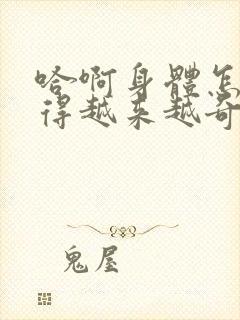 哈啊身體怎
得越來越奇
鬼屋